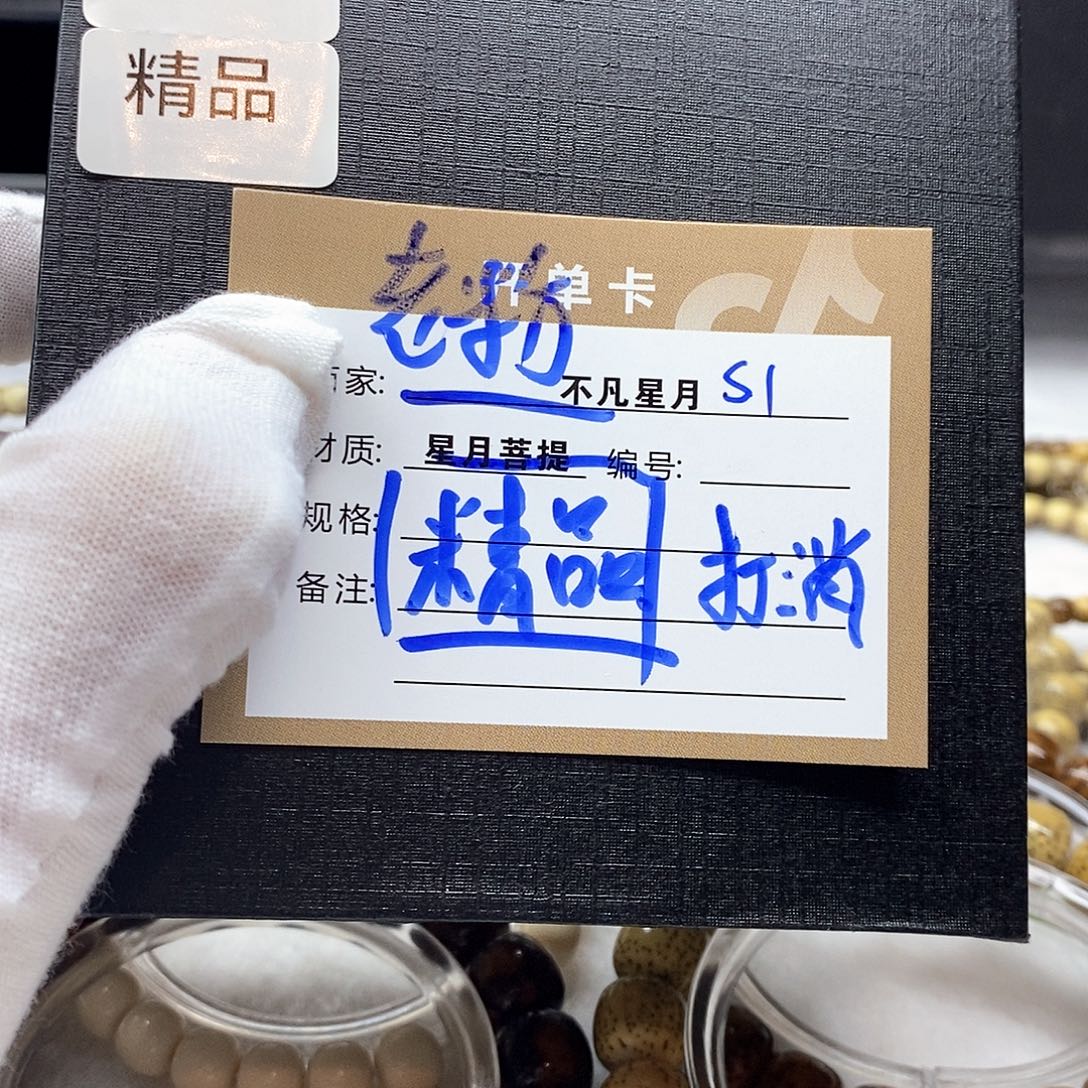 精品
开单卡
老粉
家: 不凡星月 S1
材质: 星月菩提 编号:
规格:
精品 打消
备注: